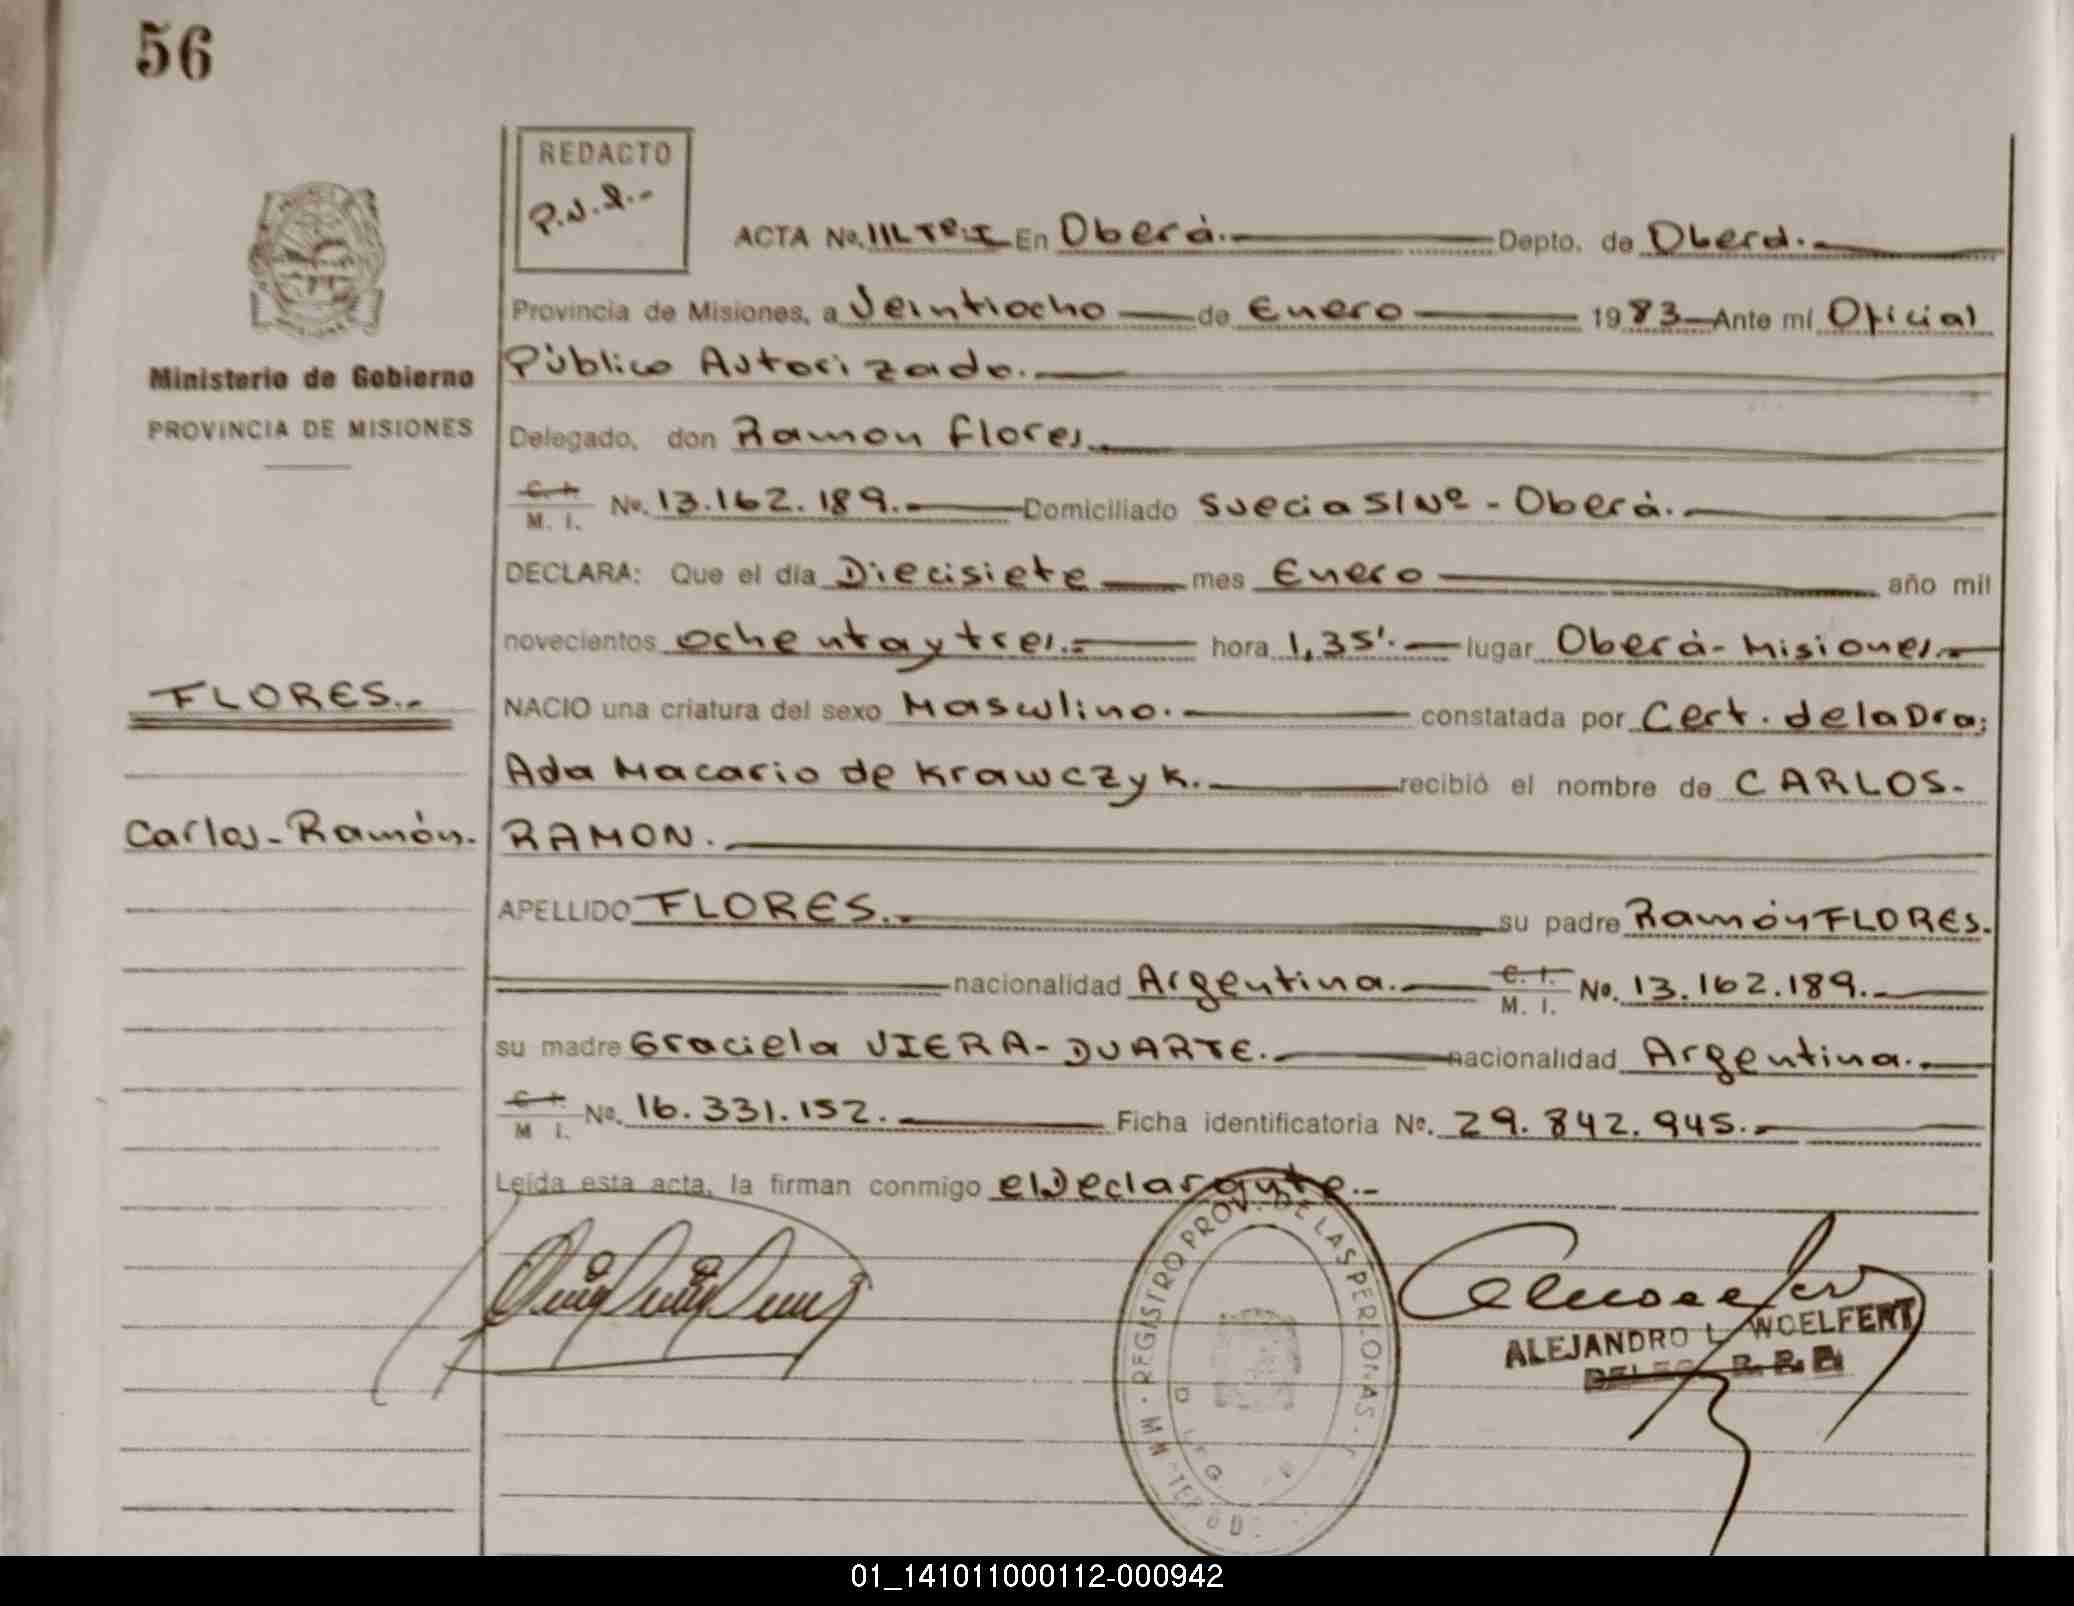 56
REDACTO
P.J.S.-
ACTA No. 111 Tº I En Oberá. Depto. de Oberá.
Provincia de Misiones, a Veintiocho de Enero 1983 Ante mí Oficial
Público Autorizado.
Ministerio de Gobierno
PROVINCIA DE MISIONES
Delegado, don Ramon Flores.
C. I. M. I. No. 13.162.189. Domiciliado Suecia S/Nº - Oberá.
DECLARA: Que el día Diecisiete mes Enero año mil
novecientos ochenta y tres. hora 1,35'. lugar Oberá - Misiones.
FLORES.
NACIO una criatura del sexo Masculino. constatada por Cert. de la Dra;
Ada Macario de Krawczyk. recibió el nombre de CARLOS-
Carlos-Ramón.
RAMON.
APELLIDO FLORES. su padre Ramón FLORES.
nacionalidad Argentina. C. I. M. I. No. 13.162.189.
su madre Graciela VIERA-DUARTE. nacionalidad Argentina.
C. I. M I. No. 16.331.152. Ficha identificatoria No. 29.842.945.
Leída esta acta, la firman conmigo el Declarante.-
REGISTRO PROV. DE LAS PERSONAS
ALEJANDRO L WOELFERT
01_141011000112-000942